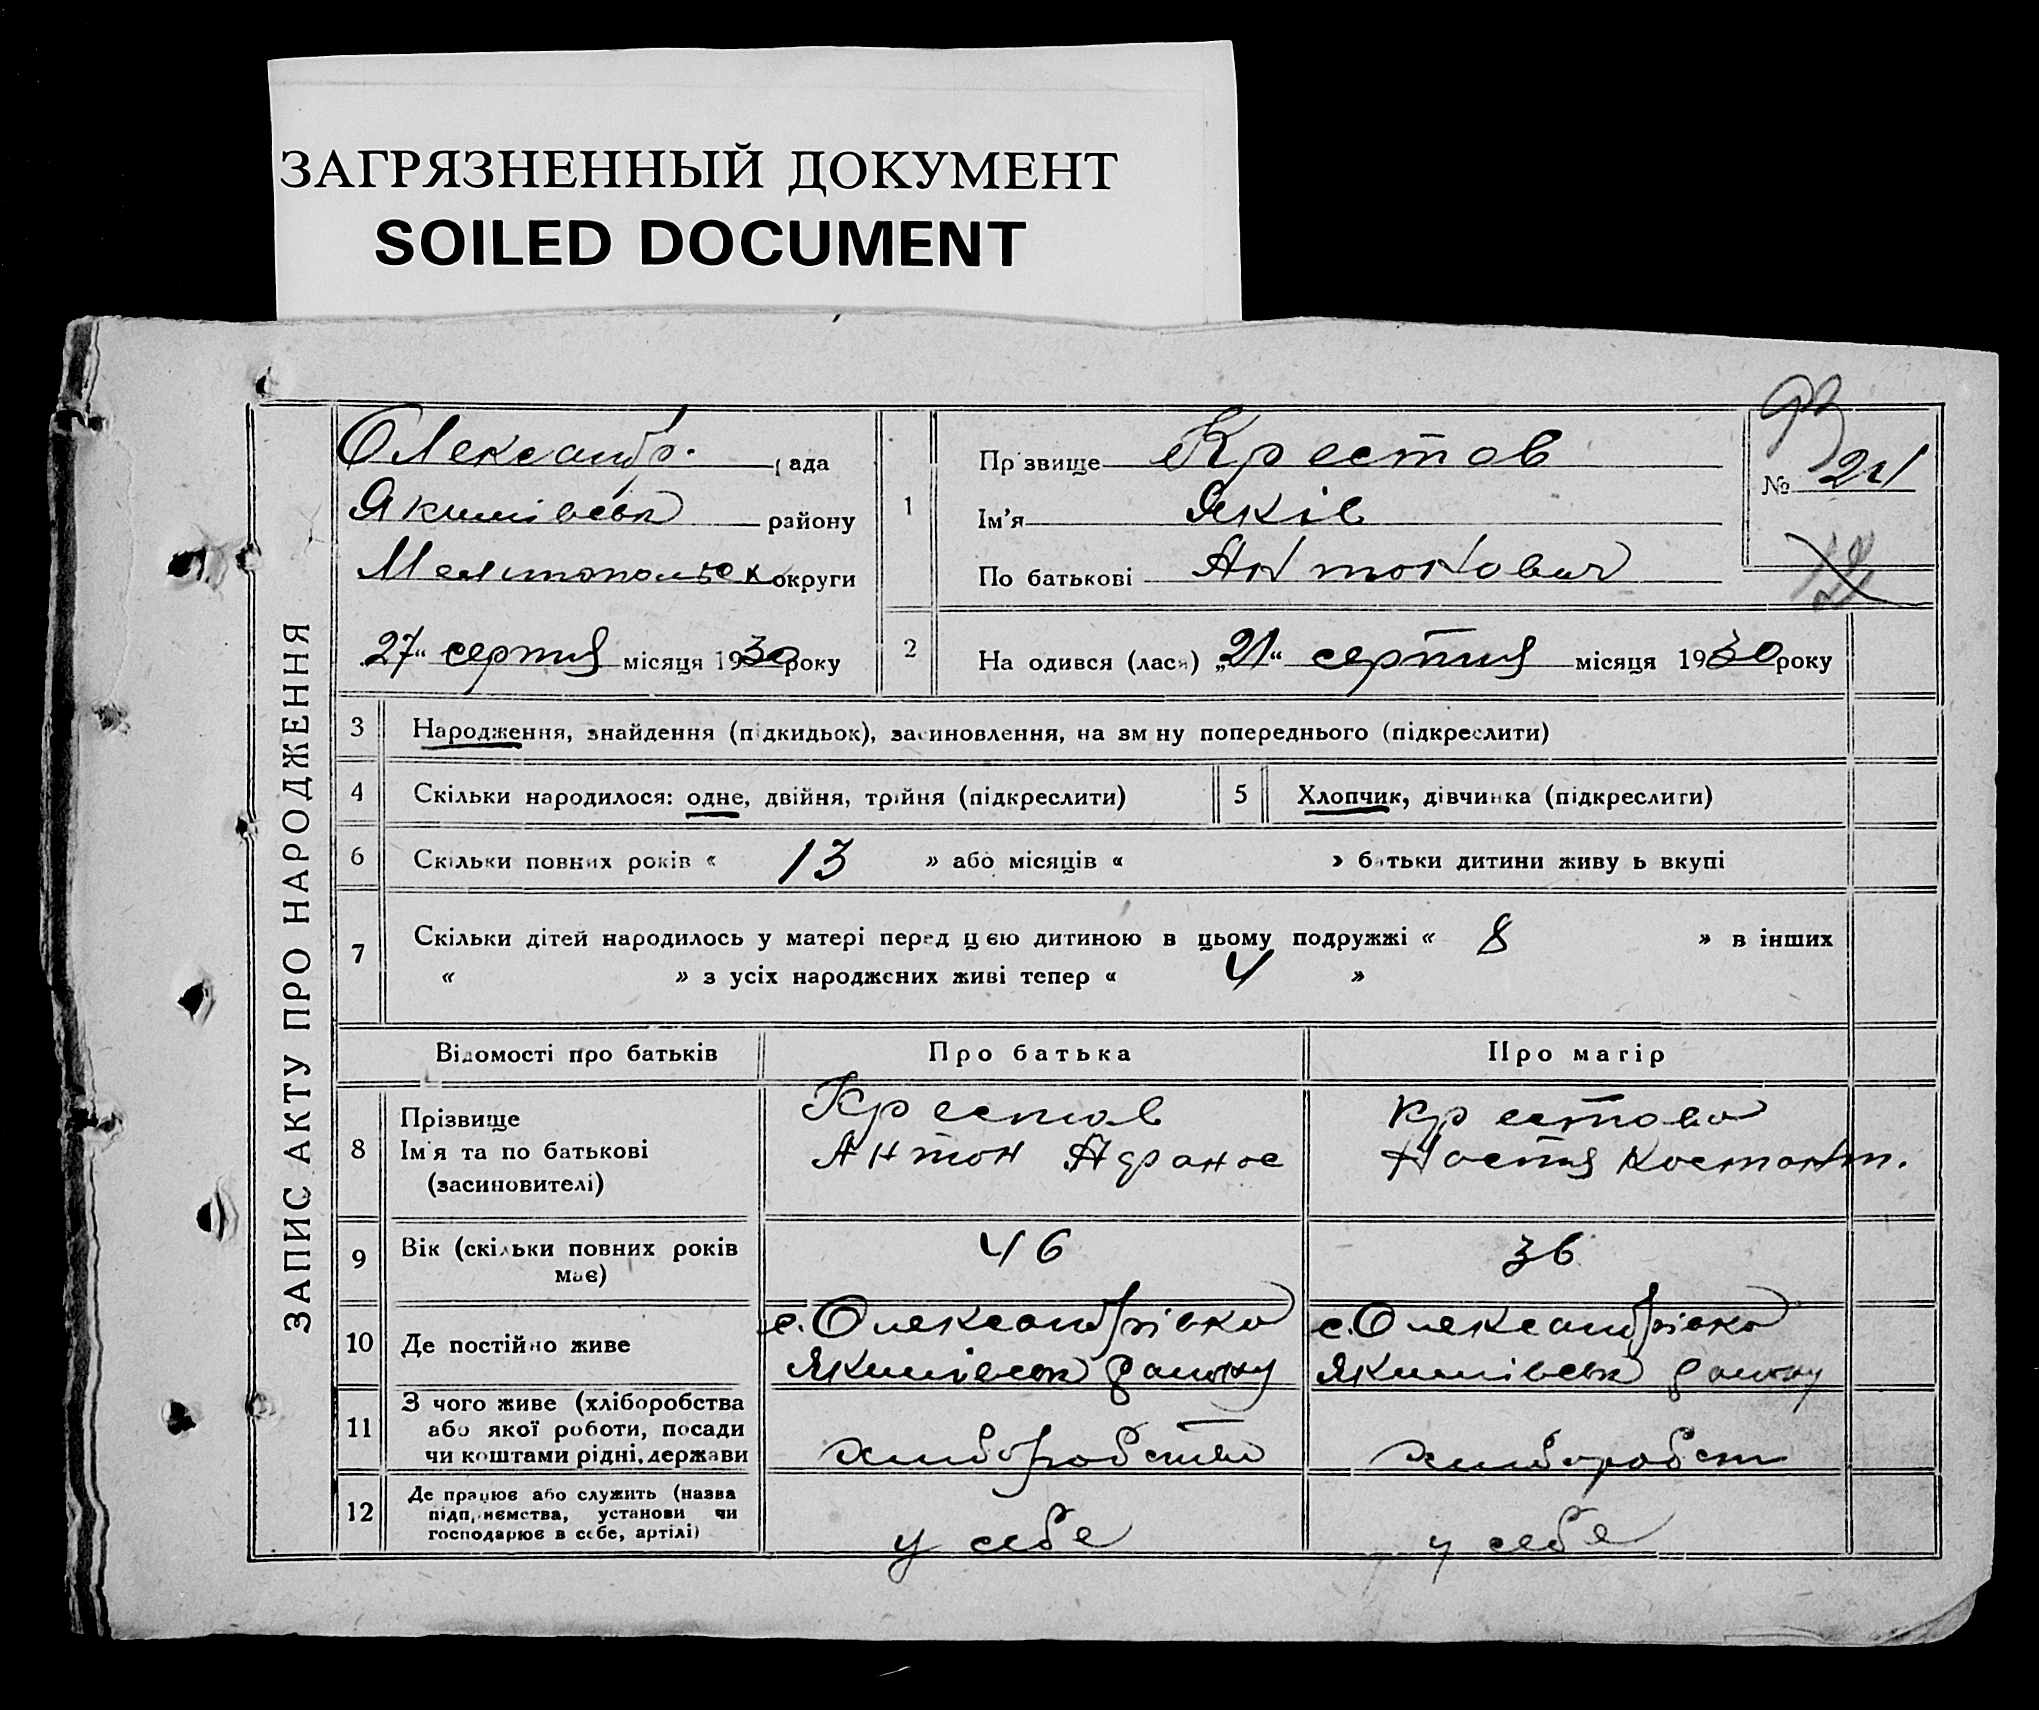 ЗАГРЯЗНЕННЫЙ ДОКУМЕНТ
SOILED DOCUMENT
ЗАПИС АКТУ ПРО НАРОДЖЕННЯ
Олександр. рада
Якимівськ району
Мелитопольськ округи
27" серпня місяця 1930 року
1
Прізвище Крестов
Ім'я Яків
По батькові Антонович
№ 21
2
На одився (лася) „21" серпня місяця 1930 року
3 Народження, знайдення (підкидьок), засиновлення, на зм ну попереднього (підкреслити)
4 Скільки народилося: одне, двійня, трійня (підкреслити)
5 Хлопчик, дівчинка (підкреслити)
6 Скільки повних років « 13 » або місяців « » батьки дитини живу ь вкупі
7 Скільки дітей народилось у матері перед цією дитиною в цьому подружжі « 8 » в інших
« » з усіх народжених живі тепер « 4 »
Відомості про батьків Про батька Про матір
8 Прізвище
Ім'я та по батькові
(засиновителі)
Крестов
Антон Афанас
Крестова
Настя Костант.
9 Вік (скільки повних років
має)
46
36
10 Де постійно живе
с. Олександрівка
Якимівськ району
с. Олександрівка
Якимівськ району
11 З чого живе (хліборобства
або якої роботи, посади
чи коштами рідні, держави
хліборобство
хлиборобст
12 Де працює або служить (назва
підприємства, установи чи
господарює в себе, артілі)
у себе
у себе